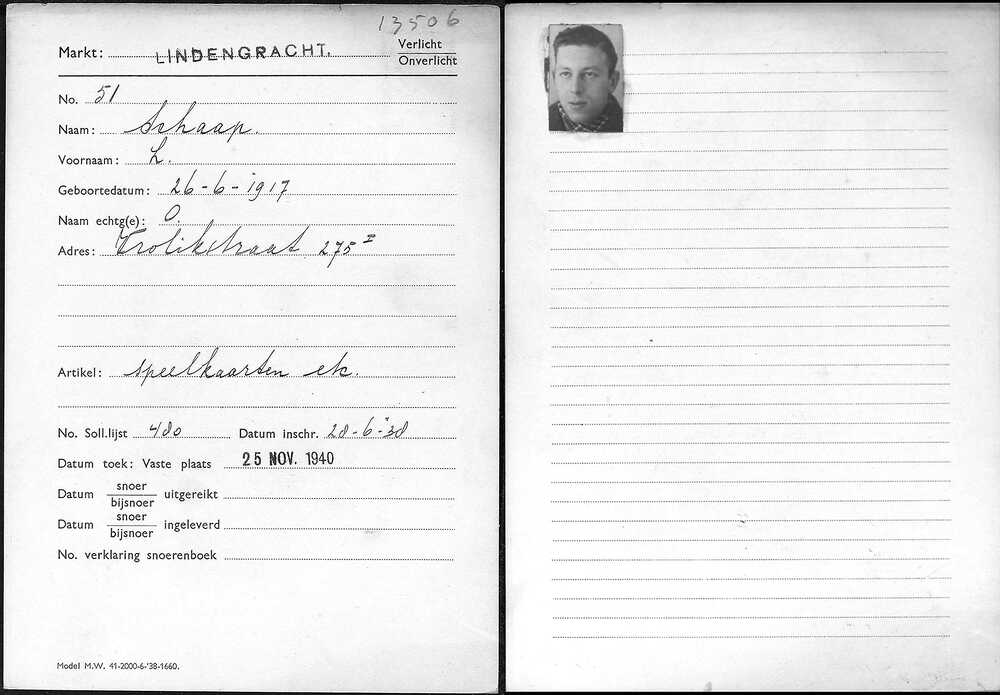 13506
Markt: LINDENGRACHT. Verlicht
Onverlicht
No. 51
Naam: Schaap.
Voornaam: L.
Geboortedatum: 26-6-1917
Naam echtg(e): O.
Adres: Vrolikstraat 275 I
Artikel: speelkaarten etc.
No. Soll.lijst 480 Datum inschr. 28-6-'38
Datum toek: Vaste plaats 25 NOV. 1940
Datum snoer uitgereikt
bijsnoer
Datum snoer ingeleverd
bijsnoer
No. verklaring snoerenboek
Model M.W. 41-2000-6-'38-1660.